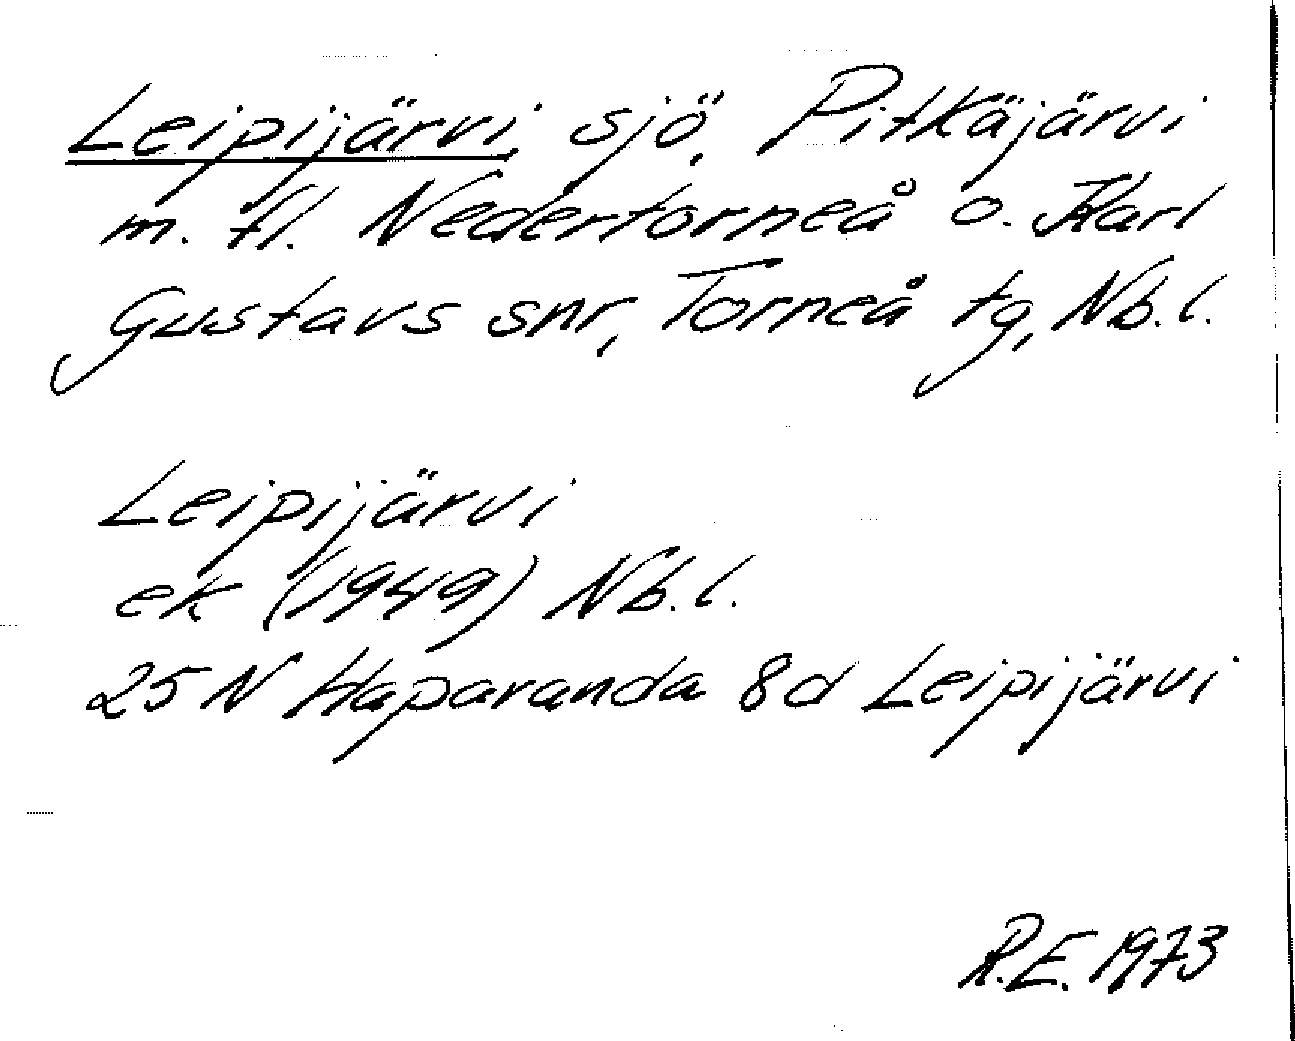 Leipijärvi, sjö, Pitkäjärvi
m. fl. Nedertorneå o. Karl
Gustavs snr, Torneå tg, Nb.l.
Leipijärvi
ek (1949) Nb.l.
25 N Haparanda 8d Leipijärvi
R.E. 1973